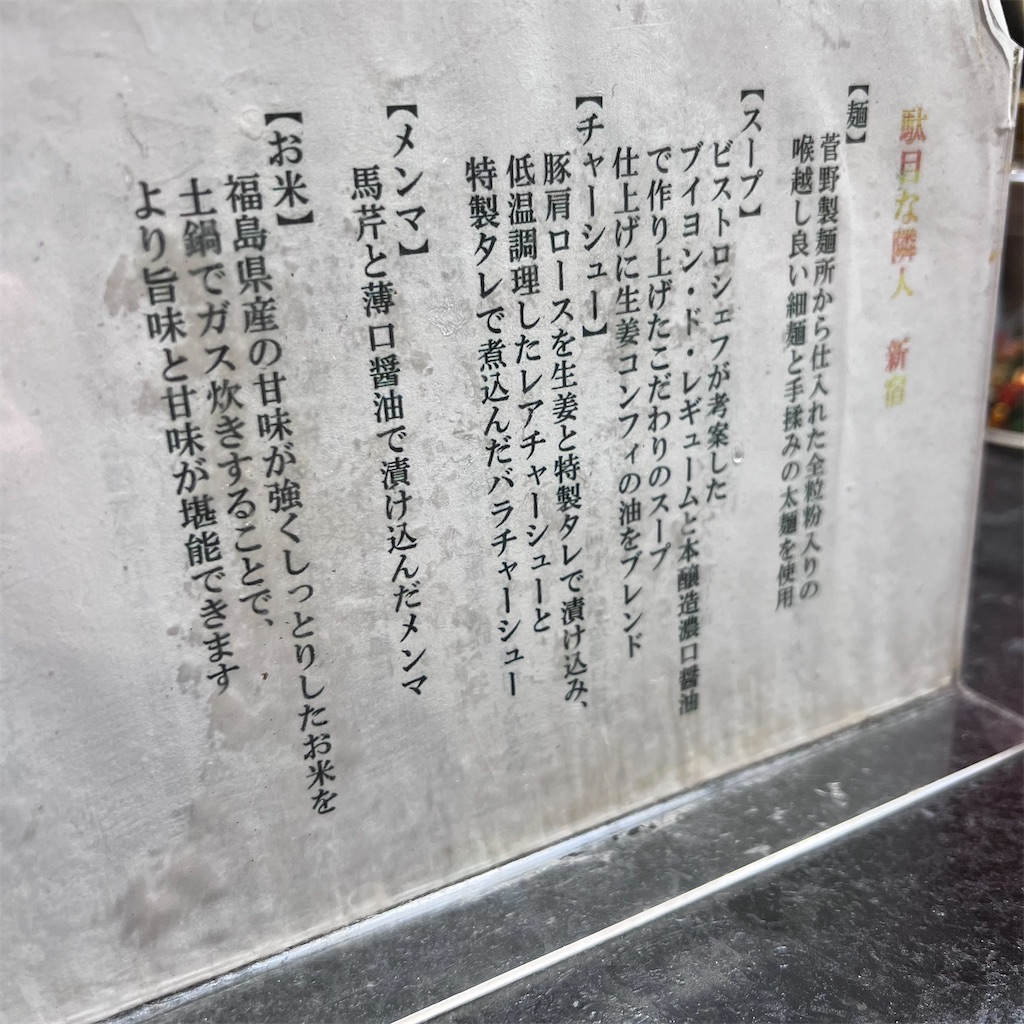 駄目な隣人 新宿
【麺】
菅野製麺所から仕入れた全粒粉入りの
喉越し良い細麺と手揉みの太麺を使用
【スープ】
ビストロシェフが考案した
ブイヨン・ド・レギュームと本醸造濃口醤油
で作り上げたこだわりのスープ
仕上げに生姜コンフィの油をブレンド
【チャーシュー】
豚肩ロースを生姜と特製タレで漬け込み、
低温調理したレアチャーシューと
特製タレで煮込んだバラチャーシュー
【メンマ】
馬芹と薄口醤油で漬け込んだメンマ
【お米】
福島県産の甘味が強くしっとりしたお米を
土鍋でガス炊きすることで、
より旨味と甘味が堪能できます